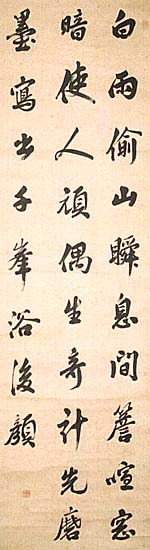 白雨偷山瞬息間簷喧窓
暗使人頑偶生奇計先磨
墨寫出千峯浴後顔